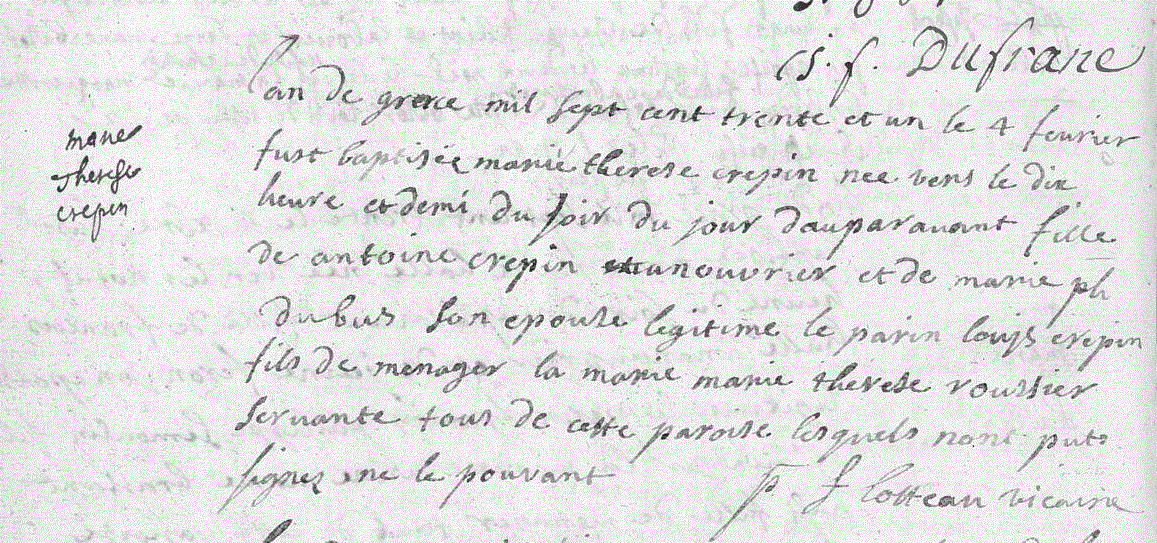 j. f. Dufrane
marie
therese
crepin
Lan de grace mil sept cent trente et un le 4 fevrier
fust baptisée marie therese crepin nee vers le dix
heure et demi du soir du jour dauparavant fille
de antoine crepin manouvrier et de marie ph
dubus son epouse legitime le parin louijs crepin
fils de menager la marie marie therese roussier
servante tous de cette paroise lesquels nont puts
signez ne le pouvant
p f lotteau vicaire